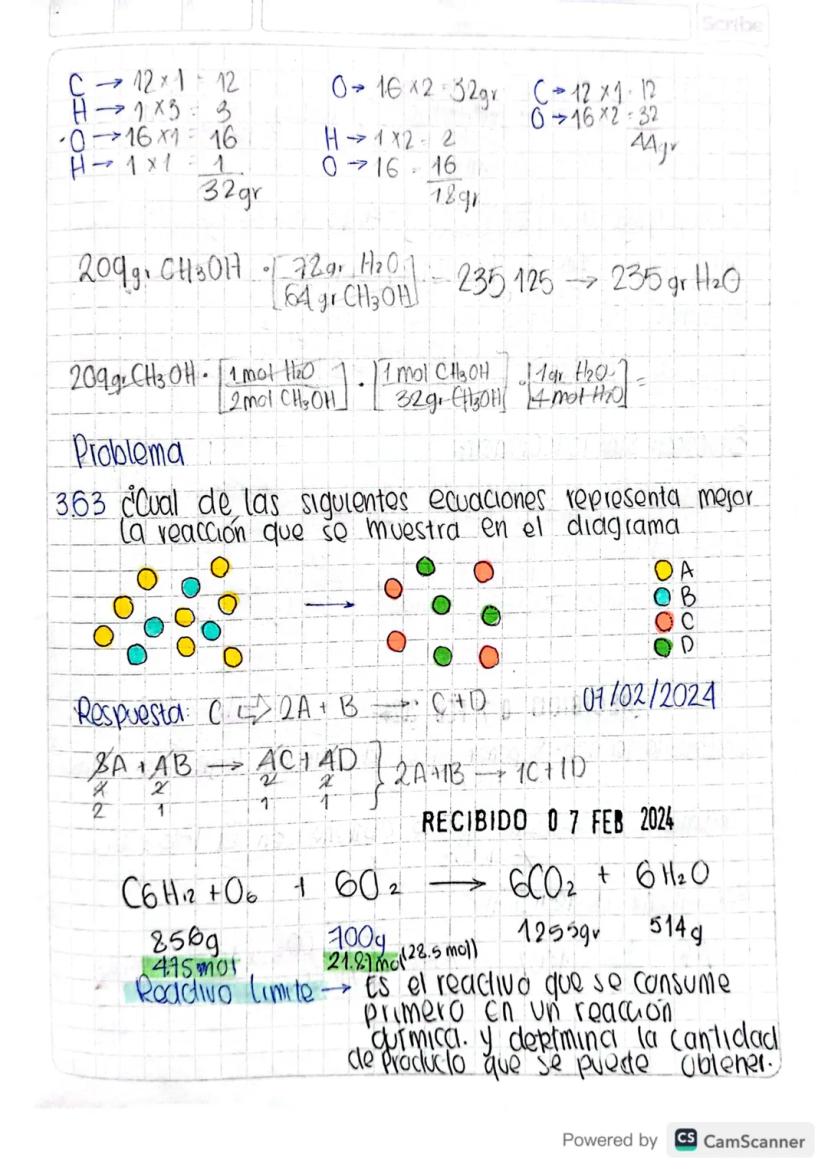 Scribe
C → 12 x 1 = 12
H → 1 x 3 = 3
O → 16 x 1 = 16
H → 1 x 1 = 1
32gr
O → 16 x 2 = 32gr
H → 1 x 2 = 2
O → 16 = 16
18gr
C → 12 x 1 = 12
O → 16 x 2 = 32
44gr
209gr CH3OH · [72gr H2O / 64 gr CH3OH] = 235 125 → 235 gr H2O
209gr CH3OH · [1 mol H2O / 2mol CH3OH] · [1 mol CH3OH / 32gr CH3OH] · [1gr H2O / 4 mol H2O] =
Problema
3.63 ¿Cual de las siguientes ecuaciones representa mejor
la reacción que se muestra en el diagrama
A
B
C
D
Respuesta: C ⇨ 2A + B → C + D
07/02/2024
8A + 4B → 4C + 4D } 2A + 1B → 1C + 1D
4 2 2 2
2 1 1 1
RECIBIDO 07 FEB 2024
C6H12 + O6 + 6O2 → 6CO2 + 6H2O
856g 700g 1255gr 514g
4.75 mol 21.87 mol (28.5 mol)
Reactivo limite → Es el reactivo que se consume
primero en un reacción
química. y deptmina la cantidad
de producto que se puede obtener.
Powered by CS CamScanner